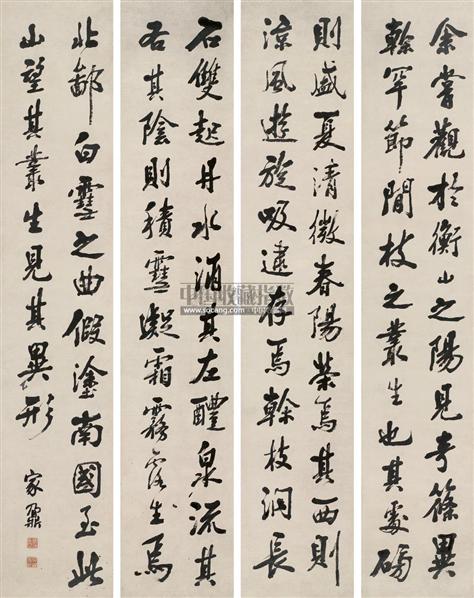 余嘗觀於衡山之陽見奇篠異
榦罕節間枝之叢生也其處磅
則盛夏清微春陽榮焉其西則
涼風遊旋吸逮存焉榦枝洞長
石雙起丹水涌其左醴泉流其
右其陰則積雪凝霜霧露生焉
北鄙白雪之曲假塗南國至此
山望其叢生見其異形 家鼐
中国收藏指数
www.socang.com